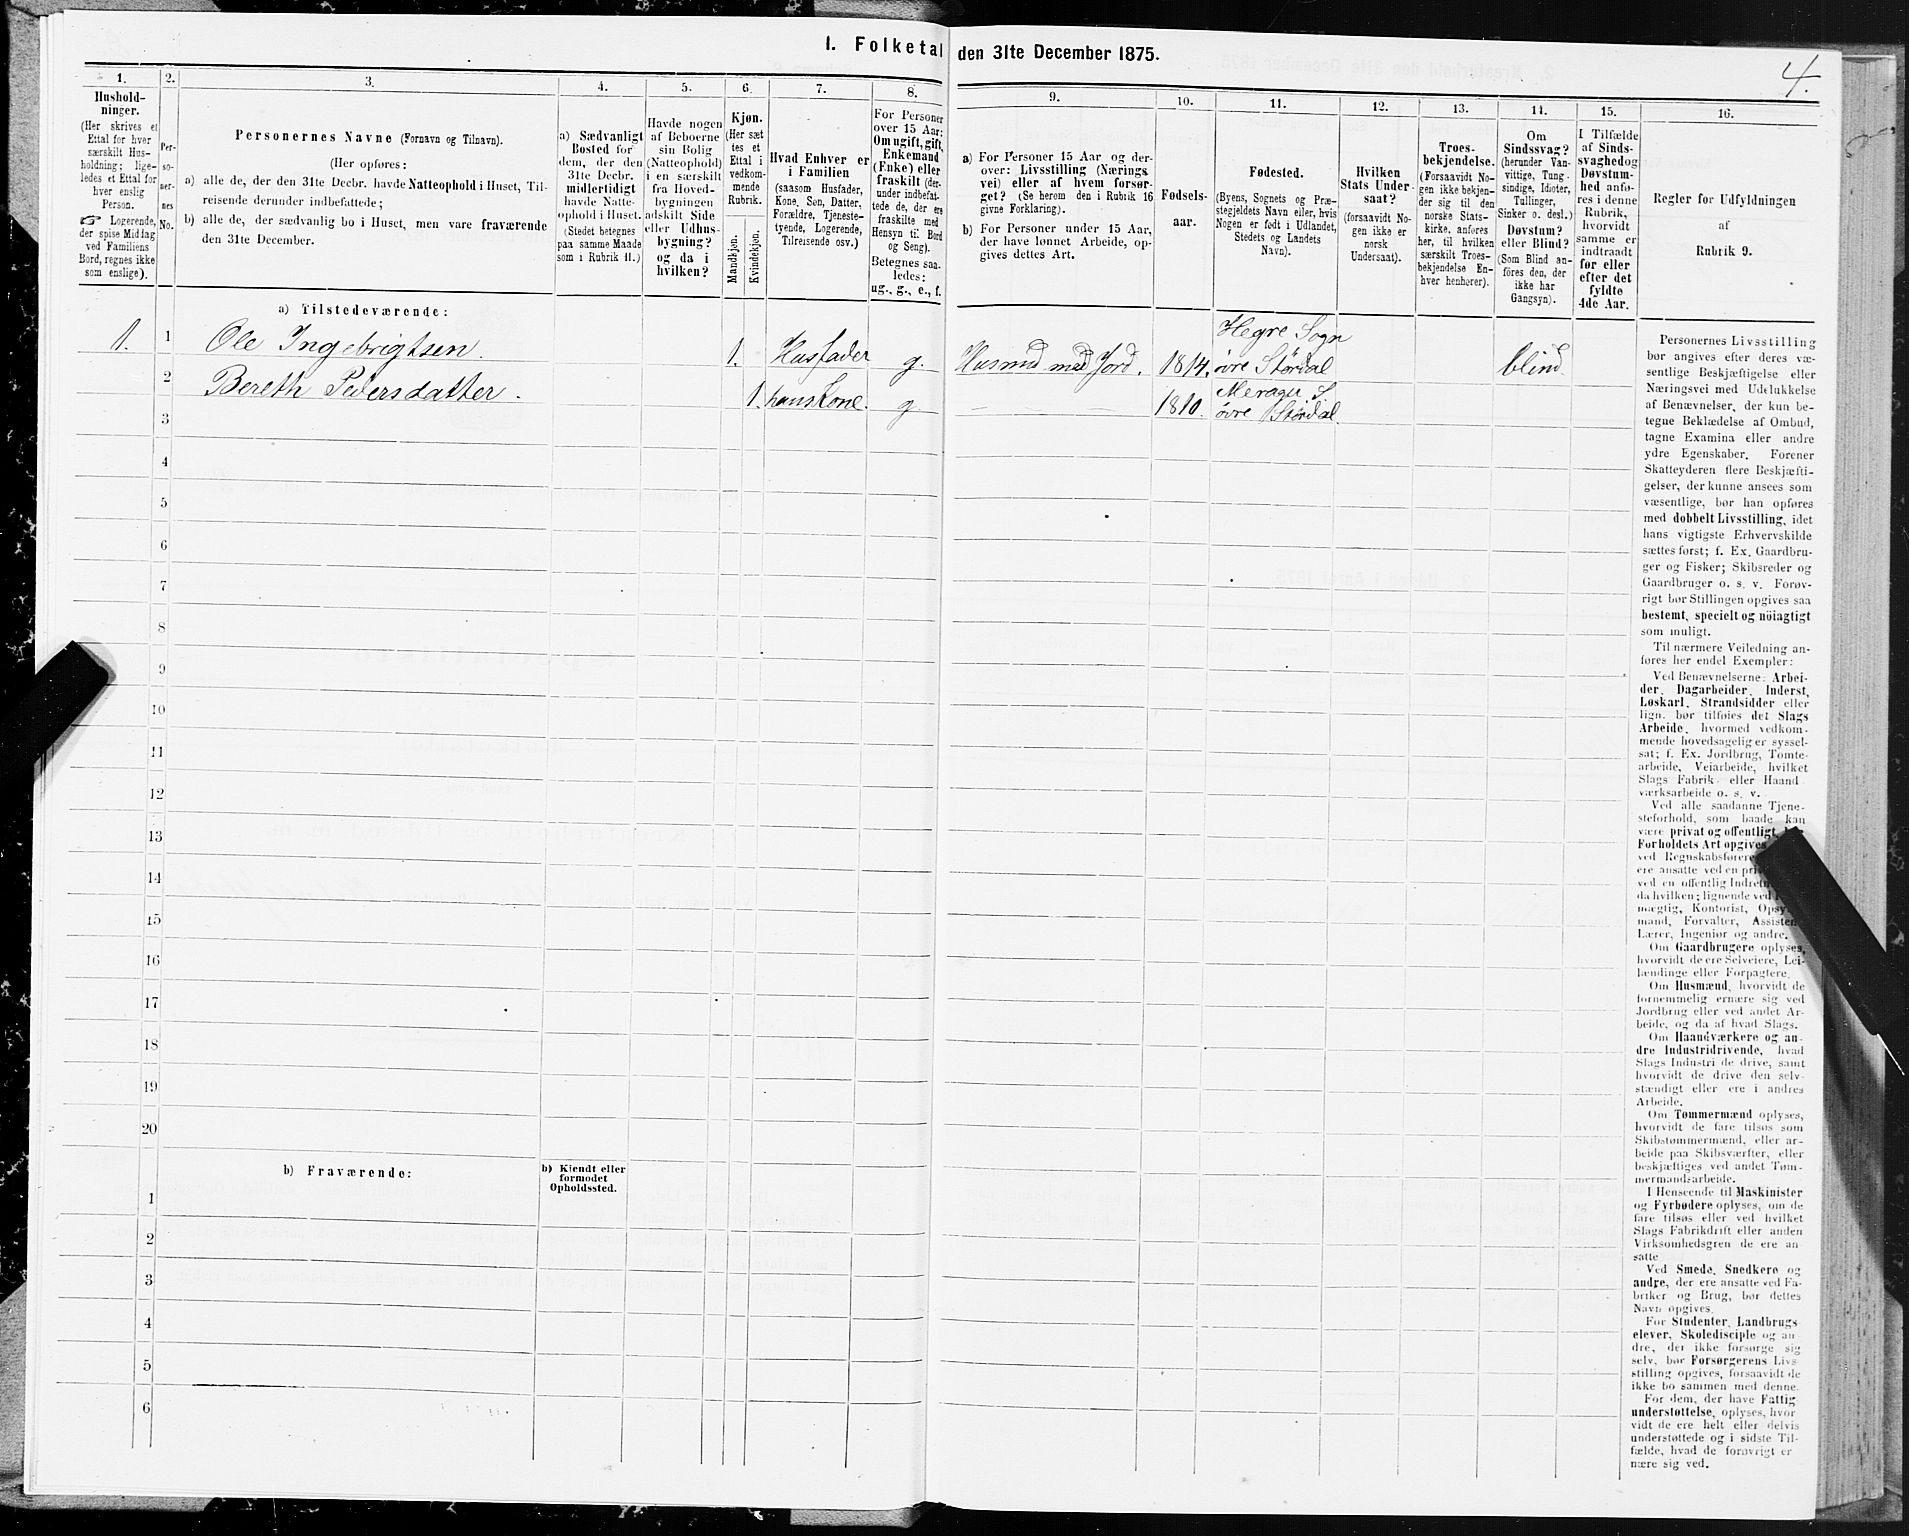 1. Folketal den 31te December 1875.
4.
1.
Hushold-
ninger.
(Her skrives et
Ettal for hver
særskilt Hus-
holdning; lige-
ledes et Ettal for
hver enslig
Person.
☞ Logerende,
der spise Middag
ved Familiens
Bord, regnes ikke
som enslige).
2.
Per-
so-
ner-
nes
No.
3.
Personernes Navne (Fornavn og Tilnavn).
(Her opføres:
a) alle de, der den 31te Decbr. havde Natteophold i Huset, Til-
reisende derunder indbefattede;
b) alle de, der sædvanlig bo i Huset, men vare fraværende
den 31te December.
4.
a) Sædvanligt
Bosted for
dem, der den
31te Decbr.
midlertidigt
havde Natte-
ophold i Huset.
(Stedet betegnes
paa samme Maade
som i Rubrik 11.)
5.
Havde nogen
af Beboerne
sin Bolig
(Natteophold)
i en særskilt
fra Hoved-
bygningen
adskilt Side
eller Udhus-
bygning?
og da i
hvilken?
6.
Kjøn.
(Her sæt
tes et
Ettal i
vedkom-
mende
Rubrik.
Mandkjøn.
Kvindekjøn.
7.
Hvad Enhver er
i Familien
(saasom Husfader,
Kone, Søn, Datter,
Forældre, Tjeneste-
tyende, Logerende,
Tilreisende osv.)
8.
For Personer
over 15 Aar:
Om ugift, gift,
Enkemand
(Enke) eller
fraskilt (der-
under indbefat-
tede de, der ere
fraskilte med
Hensyn til Bord
og Seng).
Betegnes saa-
ledes:
ug., g., e., f.
9.
a) For Personer 15 Aar og der-
over: Livsstilling (Nærings
vei) eller af hvem forsør-
get? (Se herom den i Rubrik 16
givne Forklaring).
b) For Personer under 15 Aar,
der have lønnet Arbeide, op-
gives dettes Art.
10.
Fødsels-
aar.
11.
Fødested.
(Byens, Sognets og Præ-
stegjeldets Navn eller, hvis
Nogen er født i Udlandet,
Stedets og Landets
Navn).
12.
Hvilken
Stats Under-
saat?
(forsaavidt No-
gen ikke er
norsk
Undersaat).
13.
Troes-
bekjendelse.
(Forsaavidt No-
gen ikke bekjen-
der sig til den
norske Stats-
kirke, anføres
her, til hvilken
særskilt Troes-
bekjendelse En-
hver henhører).
14.
Om
Sindssvag?
(herunder Van-
vittige, Tung-
sindige, Idioter,
Tullinger,
Sinker o. desl.)
Døvstum?
eller Blind?
(Som Blind an-
føres den, der
ikke har
Gangsyn).
15.
I Tilfælde
af Sinds-
svaghed og
Døvstum-
hed anfø-
res i denne
Rubrik,
hvorvidt
samme er
indtraadt
før eller
efter det
fyldte
4de Aar.
16.
Regler for Udfyldningen
af
Rubrik 9.
a) Tilstedeværende:
1. 1 Ole Ingebrigtsen. 1. Husfader g. Husmd med Jord. 1814. Hegre Sogn
øvre Stördal blind
2 Bereth Pedersdatter. 1. hans Kone. g. — — 1810. Meragr. S
øvre Stördal.
3
4
5
6
7
8
9
10
11
12
13
14
15
16
17
18
19
20
b) Fraværende:
b) Kjendt eller
formodet
Opholdssted.
1
2
3
4
5
6
Personernes Livsstilling
bør angives efter deres væ-
sentlige Beskjæftigelse eller
Næringsvei med Udelukkelse
af Benævnelser, der kun be-
tegne Beklædelse af Ombud,
tagne Examina eller andre
ydre Egenskaber. Forener
Skatteyderen flere Beskjæfti-
gelser, der kunne ansees som
væsentlige, bør han opføres
med dobbelt Livsstilling, idet
hans vigtigste Erhvervskilde
sættes først; f. Ex. Gaardbru-
ger og Fisker; Skibsreder og
Gaardbruger o. s. v. Forøv-
rigt bør Stillingen opgives saa
bestemt, specielt og nöiagtigt
som muligt.
Til nærmere Veiledning an-
føres her endel Exempler:
Ved Benævnelserne: Arbei-
der, Dagarbeider, Inderst,
Løskarl, Strandsidder eller
lign. bør tilføies det Slags
Arbeide, hvormed vedkom-
mende hovedsagelig er syssel-
sat; f. Ex. Jordbrug, Tomte-
arbeide, Veiarbeide, hvilket
Slags Fabrik- eller Haand-
værksarbeide o. s. v.
Ved alle saadanne Tjene-
steforhold, som baade kan
være privat og offentligt,
Forholdets Art opgives
ved Regnskabsførere
ere ansatte ved en
ved en offentlig
da hvilken; lignende ved
mægtig, Kontorist,
mand, Forvalter,
Lærer, Ingeniør og andre.
Om Gaardbrugere oplyses,
hvorvidt de ere Selveiere, Lei-
lændinge eller Forpagtere.
Om Husmænd, hvorvidt de
fornemmelig ernære sig ved
Jordbrug eller ved andet Ar-
beide, og da af hvad Slags.
Om Haandværkere og an-
dre Industridrivende, hvad
Slags Industri de drive, samt
hvorvidt de drive den selv-
stændigt eller ere i andres
Arbeide.
Om Tømmermænd oplyses,
hvorvidt de fare tilsøs som
Skibstømmermænd, eller ar-
beide paa Skibsværfter, eller
beskjæftiges ved andet Tøm-
mermandsarbeide.
I Henseende til Maskinister
og Fyrbødere oplyses, om de
fare tilsøs eller ved hvilket
Slags Fabrikdrift eller anden
Virksomhedsgren de ere an-
satte
Ved Smede, Snedkere og
andre, der ere ansatte ved Fa-
briker og Brug, bør dettes
Navn opgives.
For Studenter, Landbrugs-
elever, Skoledisciple og an-
dre, der ikke forsørge sig
selv, bør Forsørgerens Livs-
stilling opgives, forsaavidt de
ikke bo sammen med denne.
For dem, der have Fattig
understøttelse, oplyses, hvor
vidt de ere helt eller delvis
understøttede og i sidste Til-
fælde, hvad de forøvrigt er
nære sig ved.